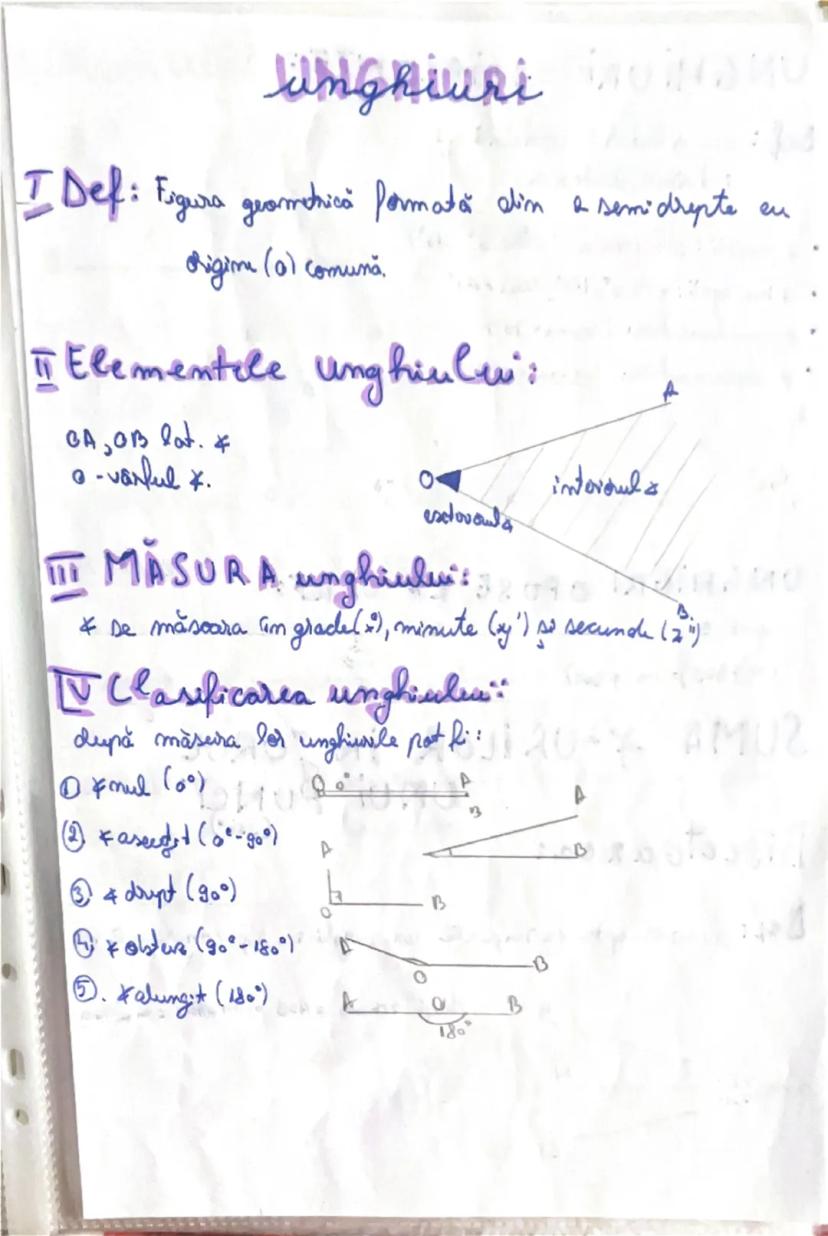 Unghiuri
I Def: Figura geometrică formată din 2 semidrepte cu
origine (O) comună.
II Elementele unghiului:
OA, OB lat. ∢
O - vârful ∢.
A
O
interiorul ∢
exteriorul ∢
B
III MĂSURA unghiului:
* se măsoara în grade (x°), minute (y') și secunde (z'')
IV Clasificarea unghiului:
după măsura lor unghiurile pot fi:
① ∢ nul (0°) O 0° A B
② ∢ ascuțit (0°-90°) A B
③ ∢ drept (90°) A O B
④ ∢ obtuz (90°-180°) A O B
⑤. ∢ alungit (180°) A O B
180°